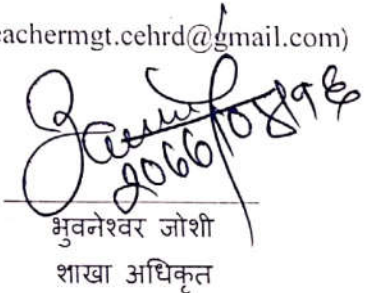 eachermgt.cehrd@gmail.com)
भुवनेश्वर जोशी
शाखा अधिकृत